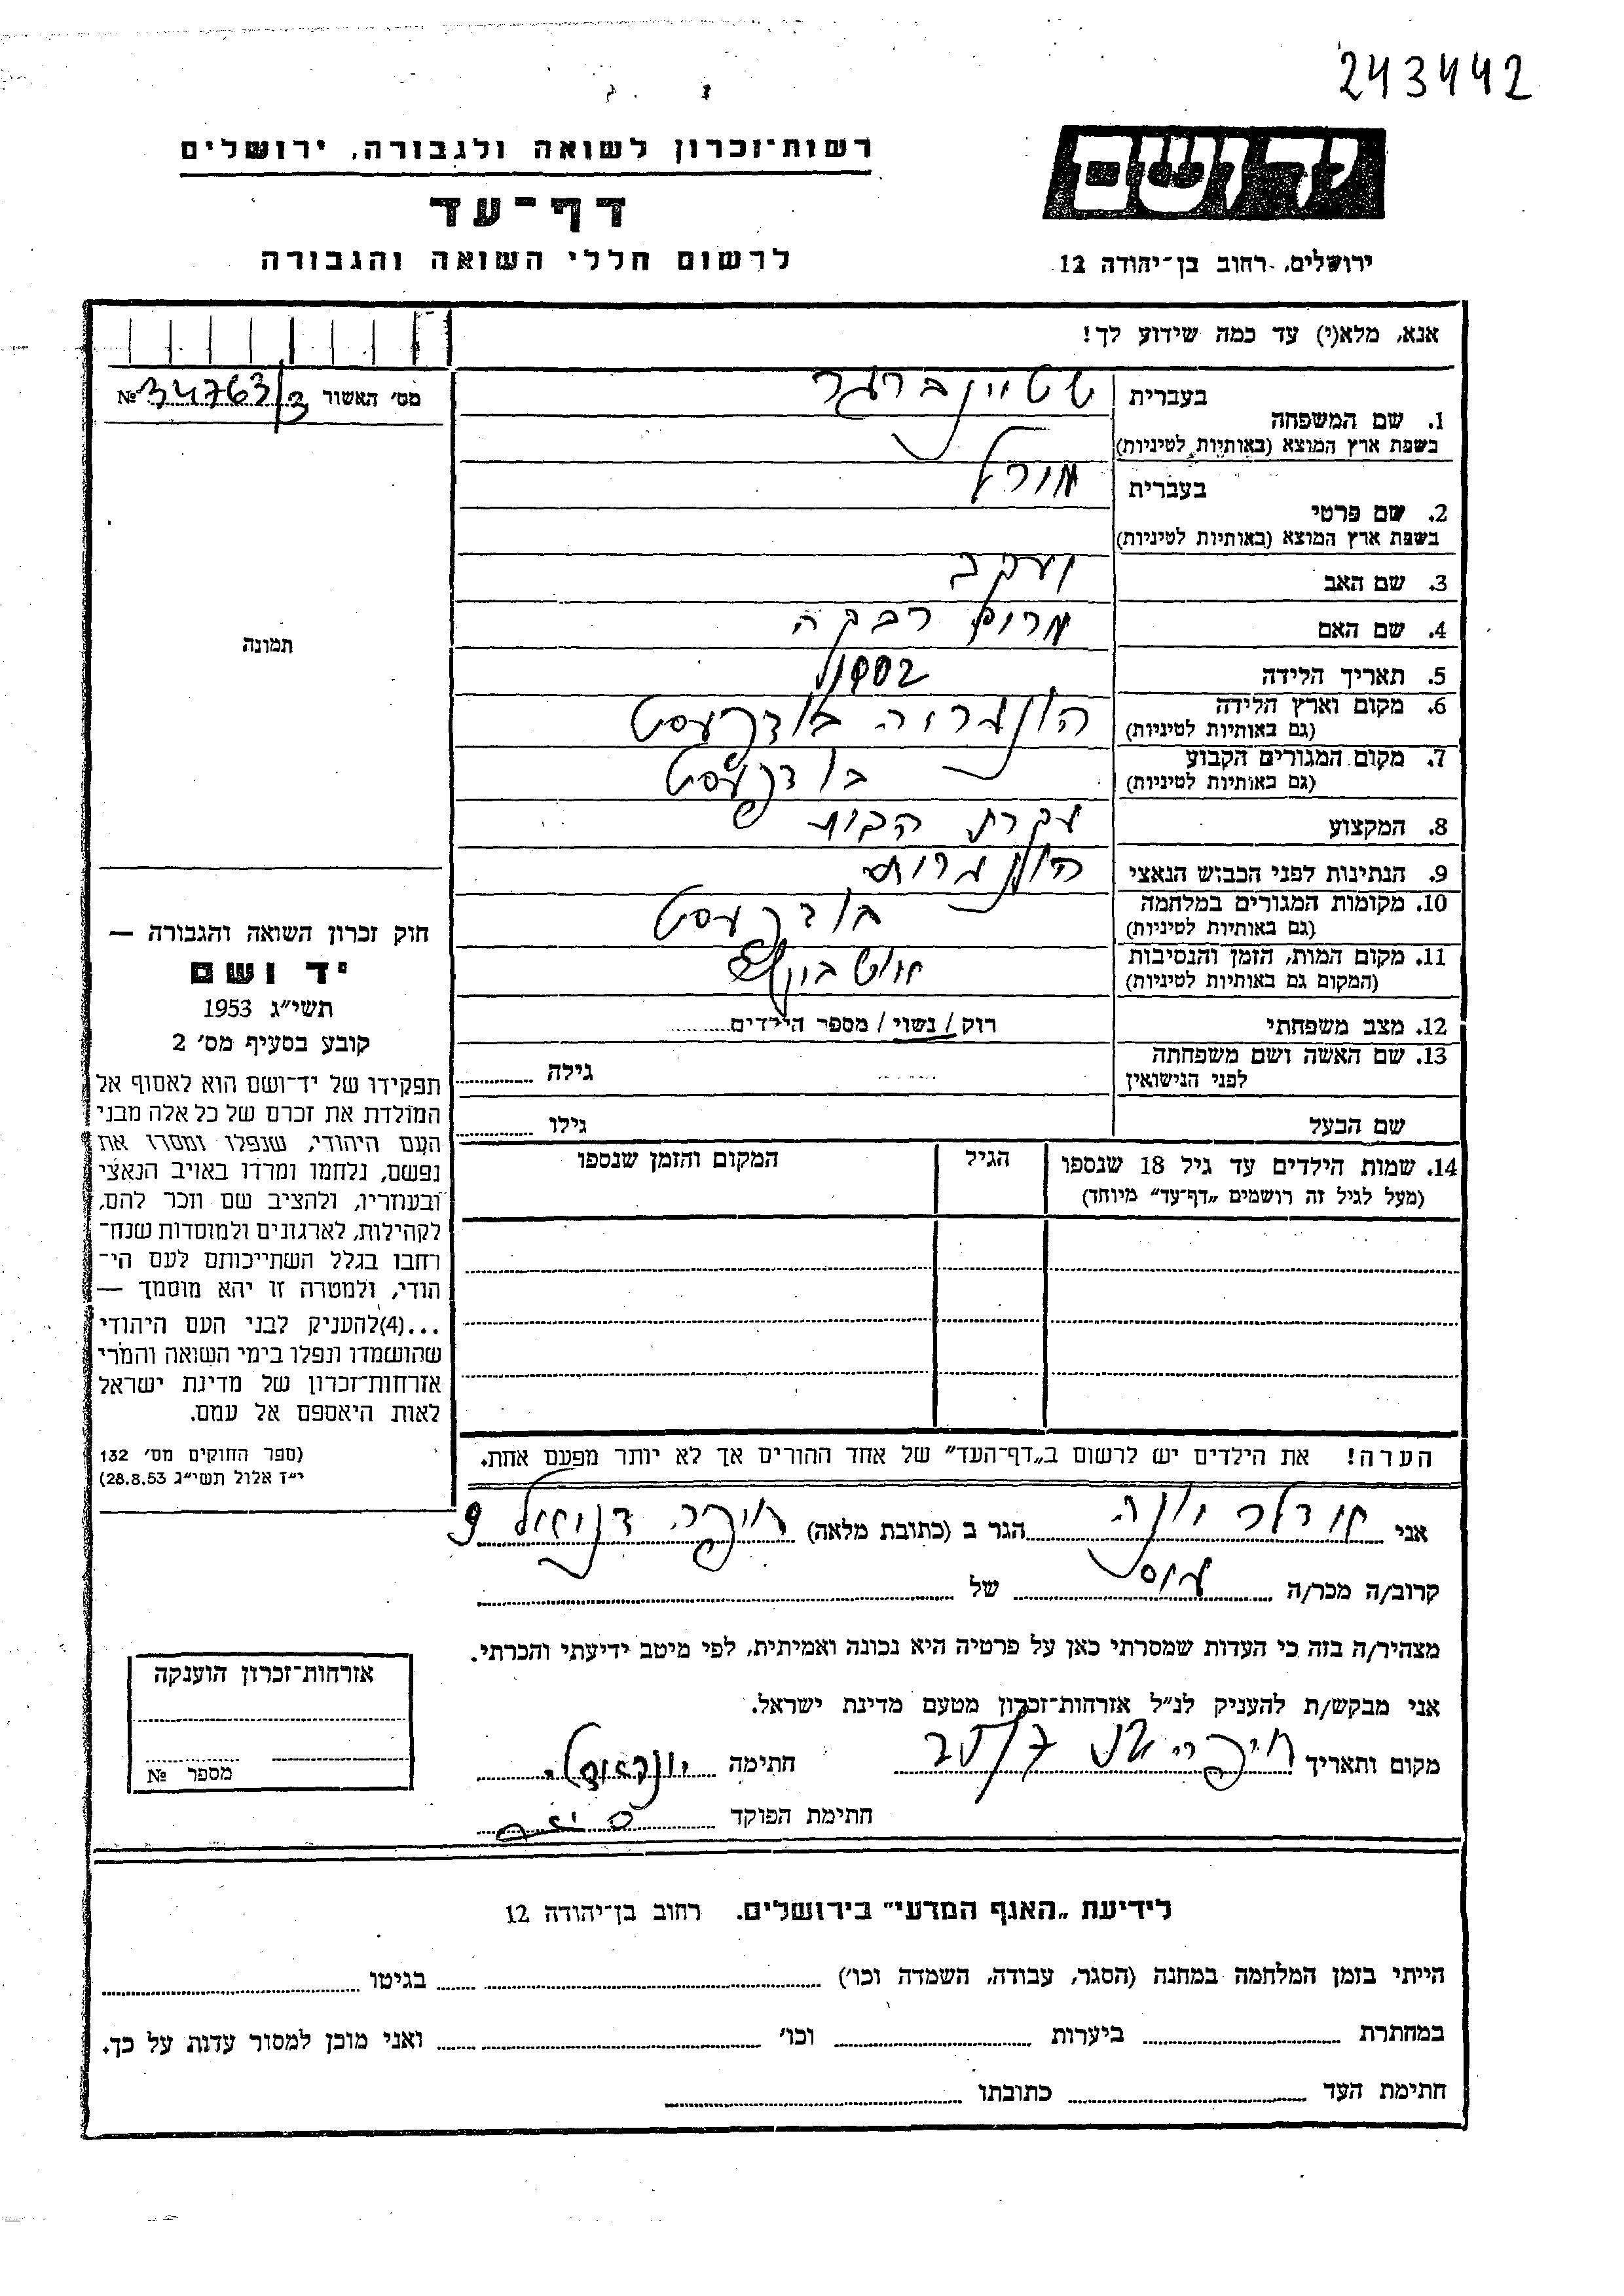 243442
רשות־זכרון לשואה ולגבורה, ירושלים
דף־עד
לרשום חללי השואה והגבורה
יד ושם
ירושלים, רחוב בן־יהודה 12
אנא, מלא(י) עד כמה שידוע לך!
מס׳ האשור 34763/3 №
1. שם המשפחה
בעברית שטיינברגר
בשפת ארץ המוצא (באותיות לטיניות)
2. שם פרטי
בעברית
בשפת ארץ המוצא (באותיות לטיניות)
3. שם האב יעקב
4. שם האם רבקה
5. תאריך הלידה 1902
6. מקום וארץ הלידה הונגריה בודפעסט
(גם באותיות לטיניות)
7. מקום המגורים הקבוע בודפעסט
(גם באותיות לטיניות)
8. המקצוע עקרת הבית
9. הנתינות לפני הכבוש הנאצי הונגרית
10. מקומות המגורים במלחמה בודפעסט
(גם באותיות לטיניות)
11. מקום המות, הזמן והנסיבות
(המקום גם באותיות לטיניות)
12. מצב משפחתי רוק / נשוי / מספר הילדים
13. שם האשה ושם משפחתה
לפני הנישואין גילה
שם הבעל גילו
14. שמות הילדים עד גיל 18 שנספו
(מעל לגיל זה רושמים „דף־עד״ מיוחד)
הגיל
המקום והזמן שנספו
תמונה
חוק זכרון השואה והגבורה —
יד ושם
תשי״ג 1953
קובע בסעיף מס׳ 2
תפקידו של יד־ושם הוא לאסוף אל
המולדת את זכרם של כל אלה מבני
העם היהודי, שנפלו ומסרו את
נפשם, נלחמו ומרדו באויב הנאצי
ובעוזריו, ולהציב שם וזכר להם,
לקהילות, לארגונים ולמוסדות שנח־
רחבו בגלל השתייכותם לעם הי־
הודי, ולמטרה זו יהא מוסמך —
...(4)להעניק לבני העם היהודי
שהושמדו ונפלו בימי השואה והמרי
אזרחות־זכרון של מדינת ישראל
לאות היאספם אל עמם.
(ספר החוקים מס׳ 132
י״ז אלול תשי״ג 28.8.53)
הערה! את הילדים יש לרשום ב„דף־העד״ של אחד ההורים אך לא יותר מפעם אחת.
אני הגר ב (כתובת מלאה) חיפה דניאל 9
קרוב/ה מכר/ה של
מצהיר/ה בזה כי העדות שמסרתי כאן על פרטיה היא נכונה ואמיתית, לפי מיטב ידיעתי והכרתי.
אני מבקש/ת להעניק לנ״ל אזרחות־זכרון מטעם מדינת ישראל.
מקום ותאריך חיפה חתימה
חתימת הפוקד
אזרחות־זכרון הוענקה
מספר №
לידיעת „האגף המדעי״ בירושלים. רחוב בן־יהודה 12
הייתי בזמן המלחמה במחנה (הסגר, עבודה, השמדה וכו׳) בגיטו
במחתרת ביערות וכו׳ ואני מוכן למסור עדות על כך.
חתימת העד כתובתו